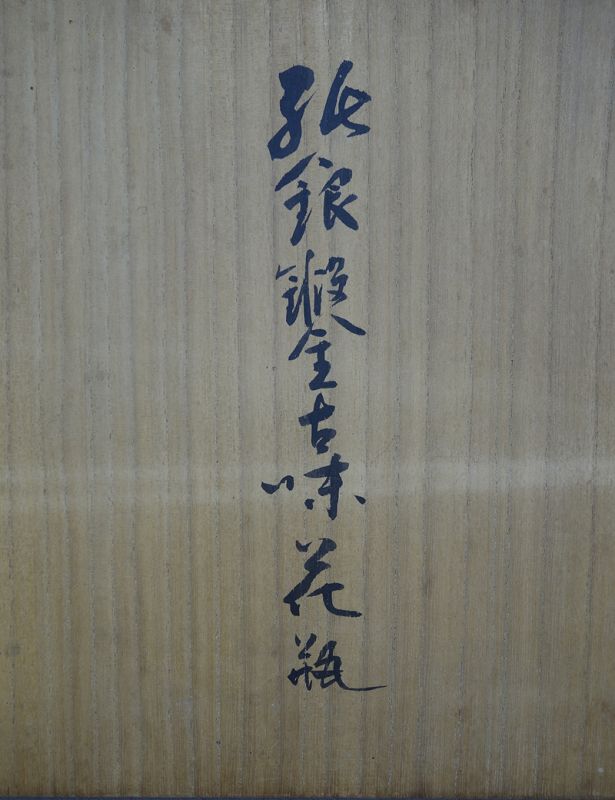 純銀鍛金古味花瓶